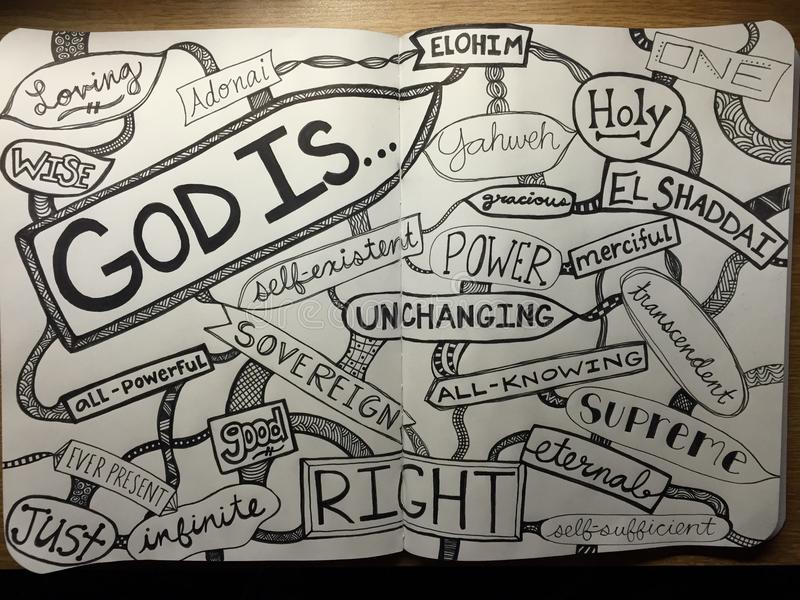 Loving
Adonai
ELOHIM
ONE
WISE
GOD IS...
Yahweh
Holy
gracious
EL SHADDAI
self-existent
POWER
merciful
UNCHANGING
transcendent
SOVEREIGN
all-powerful
ALL-KNOWING
good
SUPREME
EVER PRESENT
eternal
RIGHT
JUST
infinite
self-sufficient
dreamstime